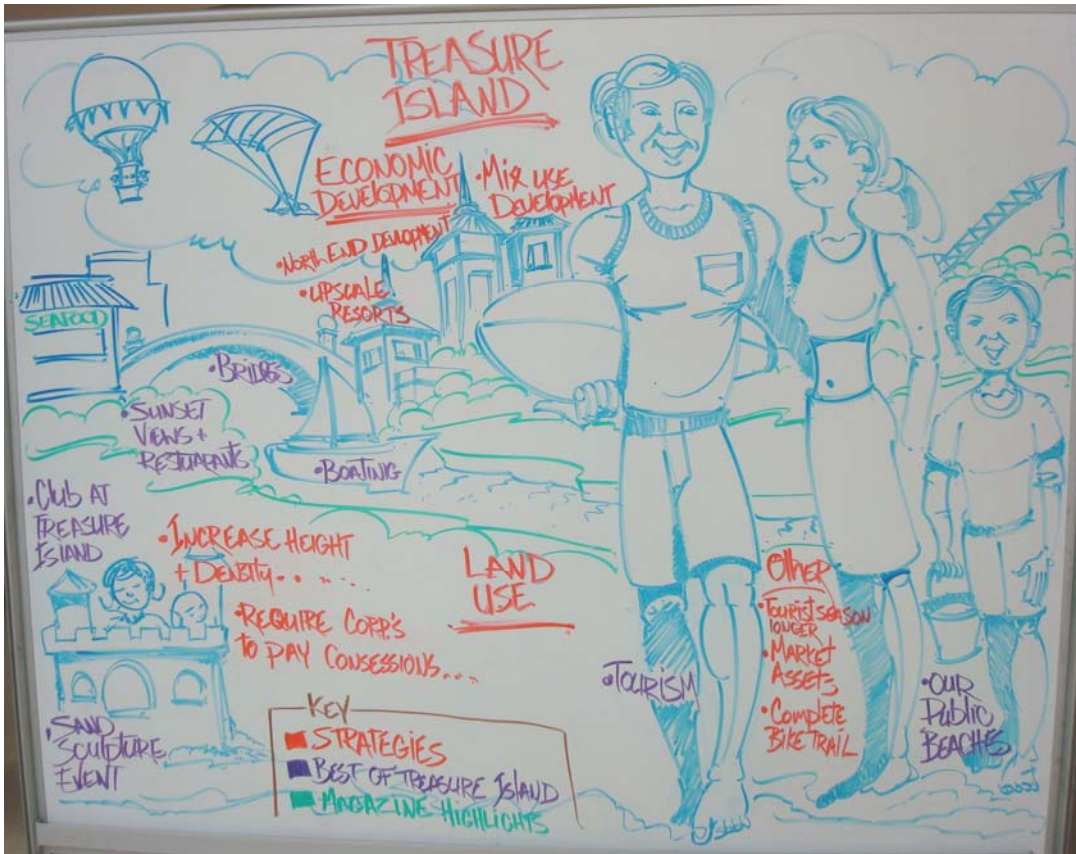 TREASURE
ISLAND
ECONOMIC
DEVELOPMENT
• MIX USE
DEVELOPMENT
• NORTH END DEVLOPMENT
• UPSCALE
RESORTS
SEAFOOD
• BRIDGES
• SUNSET
VIEWS +
RESTUARANTS
• BOATING
• Club AT
TREASURE
ISLAND
• INCREASE HEIGHT
+ DENSITY......
• REQUIRE CORP.'S
to PAY CONSESSIONS....
LAND
USE
Other
• TOURIST SEASON
LONGER
• MARKET
ASSETS
• Complete
BIKE TRAIL
• TOURISM
• OUR
Public
BEACHES
• SAND
SCULPTURE
EVENT
KEY
STRATEGIES
BEST OF TREASURE ISLAND
MAGAZINE HIGHLIGHTS